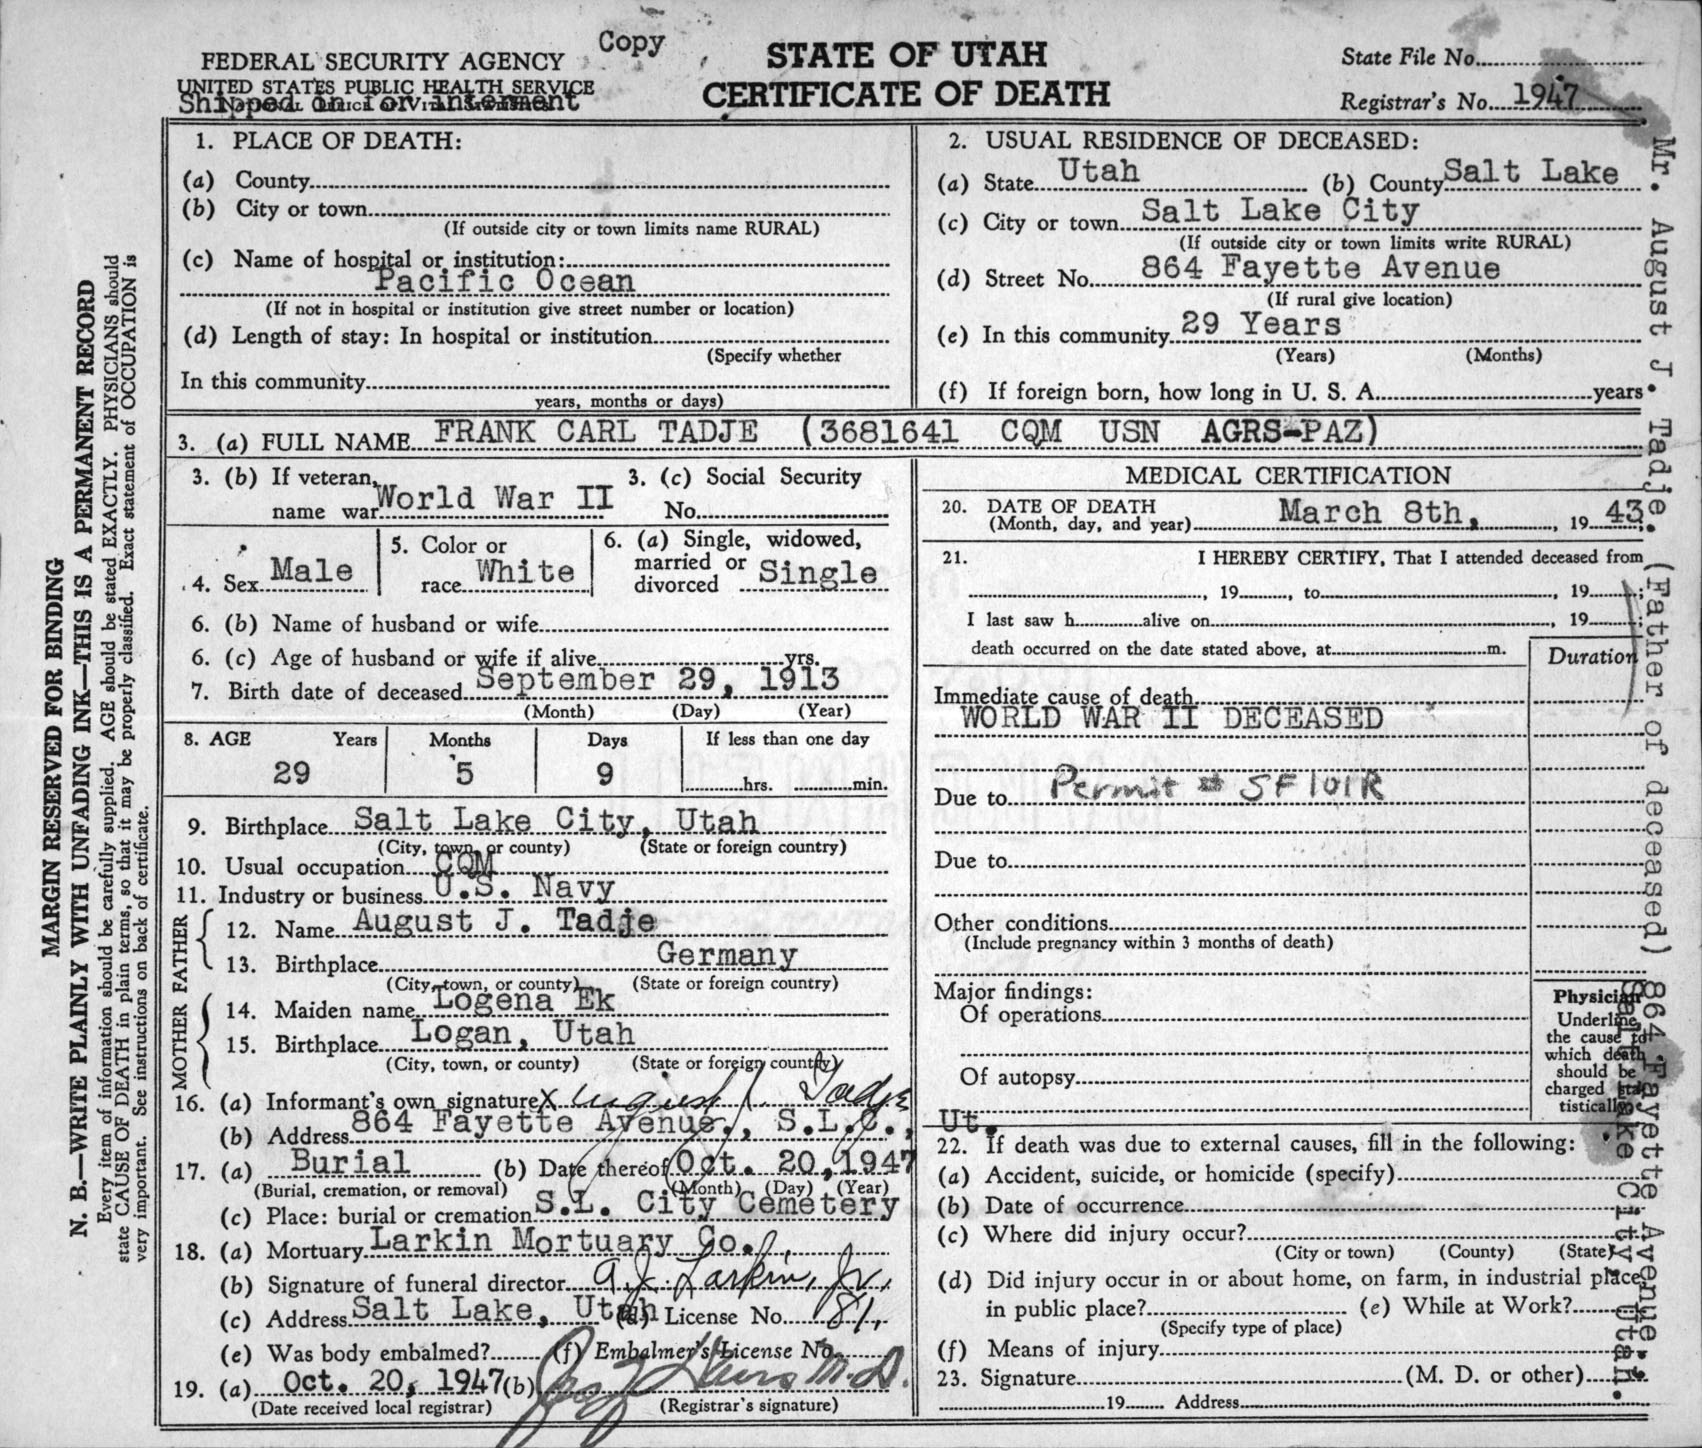 Copy
FEDERAL SECURITY AGENCY
UNITED STATES PUBLIC HEALTH SERVICE
Shipped in for interment
STATE OF UTAH
CERTIFICATE OF DEATH
State File No.
Registrar's No. 1947
1. PLACE OF DEATH:
(a) County
(b) City or town
(If outside city or town limits name RURAL)
(c) Name of hospital or institution:
Pacific Ocean
(If not in hospital or institution give street number or location)
(d) Length of stay: In hospital or institution
(Specify whether
In this community
years, months or days)
2. USUAL RESIDENCE OF DECEASED:
(a) State Utah (b) County Salt Lake
(c) City or town Salt Lake City
(If outside city or town limits write RURAL)
(d) Street No. 864 Fayette Avenue
(If rural give location)
(e) In this community 29 Years
(Years) (Months)
(f) If foreign born, how long in U. S. A. years
3. (a) FULL NAME FRANK CARL TADJE (3681641 CQM USN AGRS-PAZ)
3. (b) If veteran, 3. (c) Social Security
name war World War II No.
4. Sex Male
5. Color or
race White
6. (a) Single, widowed,
married or
divorced Single
6. (b) Name of husband or wife
6. (c) Age of husband or wife if alive yrs.
7. Birth date of deceased September 29, 1913
(Month) (Day) (Year)
8. AGE Years Months Days If less than one day
29 5 9 hrs. min.
9. Birthplace Salt Lake City, Utah
(City, town, or county) (State or foreign country)
10. Usual occupation CQM
11. Industry or business U.S. Navy
FATHER
12. Name August J. Tadje
13. Birthplace Germany
(City, town, or county) (State or foreign country)
MOTHER
14. Maiden name Logena Ek
15. Birthplace Logan, Utah
(City, town, or county) (State or foreign country)
16. (a) Informant's own signature X August J. Tadje
(b) Address 864 Fayette Avenue., S.L.C., Ut.
17. (a) Burial (b) Date thereof Oct. 20, 1947
(Burial, cremation, or removal) (Month) (Day) (Year)
(c) Place: burial or cremation S.L. City Cemetery
18. (a) Mortuary Larkin Mortuary Co.
(b) Signature of funeral director A. J. Larkin, Jr.,
(c) Address Salt Lake, Utah (d) License No. 81,
(e) Was body embalmed? (f) Embalmer's License No.
19. (a) Oct. 20, 1947 (b) M.D.
(Date received local registrar) (Registrar's signature)
MEDICAL CERTIFICATION
20. DATE OF DEATH
(Month, day, and year) March 8th, , 19 43
21. I HEREBY CERTIFY, That I attended deceased from
, 19 , to , 19 ;
I last saw h alive on , 19 ;
death occurred on the date stated above, at m.
Duration
Immediate cause of death
WORLD WAR II DECEASED
Due to Permit # SF101R
Due to
Other conditions
(Include pregnancy within 3 months of death)
Major findings:
Of operations
Of autopsy
Physician
Underline
the cause to
which death
should be
charged sta-
tistically
22. If death was due to external causes, fill in the following:
(a) Accident, suicide, or homicide (specify)
(b) Date of occurrence
(c) Where did injury occur?
(City or town) (County) (State)
(d) Did injury occur in or about home, on farm, in industrial place,
in public place? (e) While at Work?
(Specify type of place)
(f) Means of injury
23. Signature (M. D. or other)
19 Address
MARGIN RESERVED FOR BINDING
N. B.—WRITE PLAINLY WITH UNFADING INK—THIS IS A PERMANENT RECORD
Every item of information should be carefully supplied. AGE should be stated EXACTLY. PHYSICIANS should
state CAUSE OF DEATH in plain terms, so that it may be properly classified. Exact statement of OCCUPATION is
very important. See instructions on back of certificate.
Mr. August J. Tadje. (Father of deceased) 864 Fayette Avenue.,
Salt Lake City, Utah.